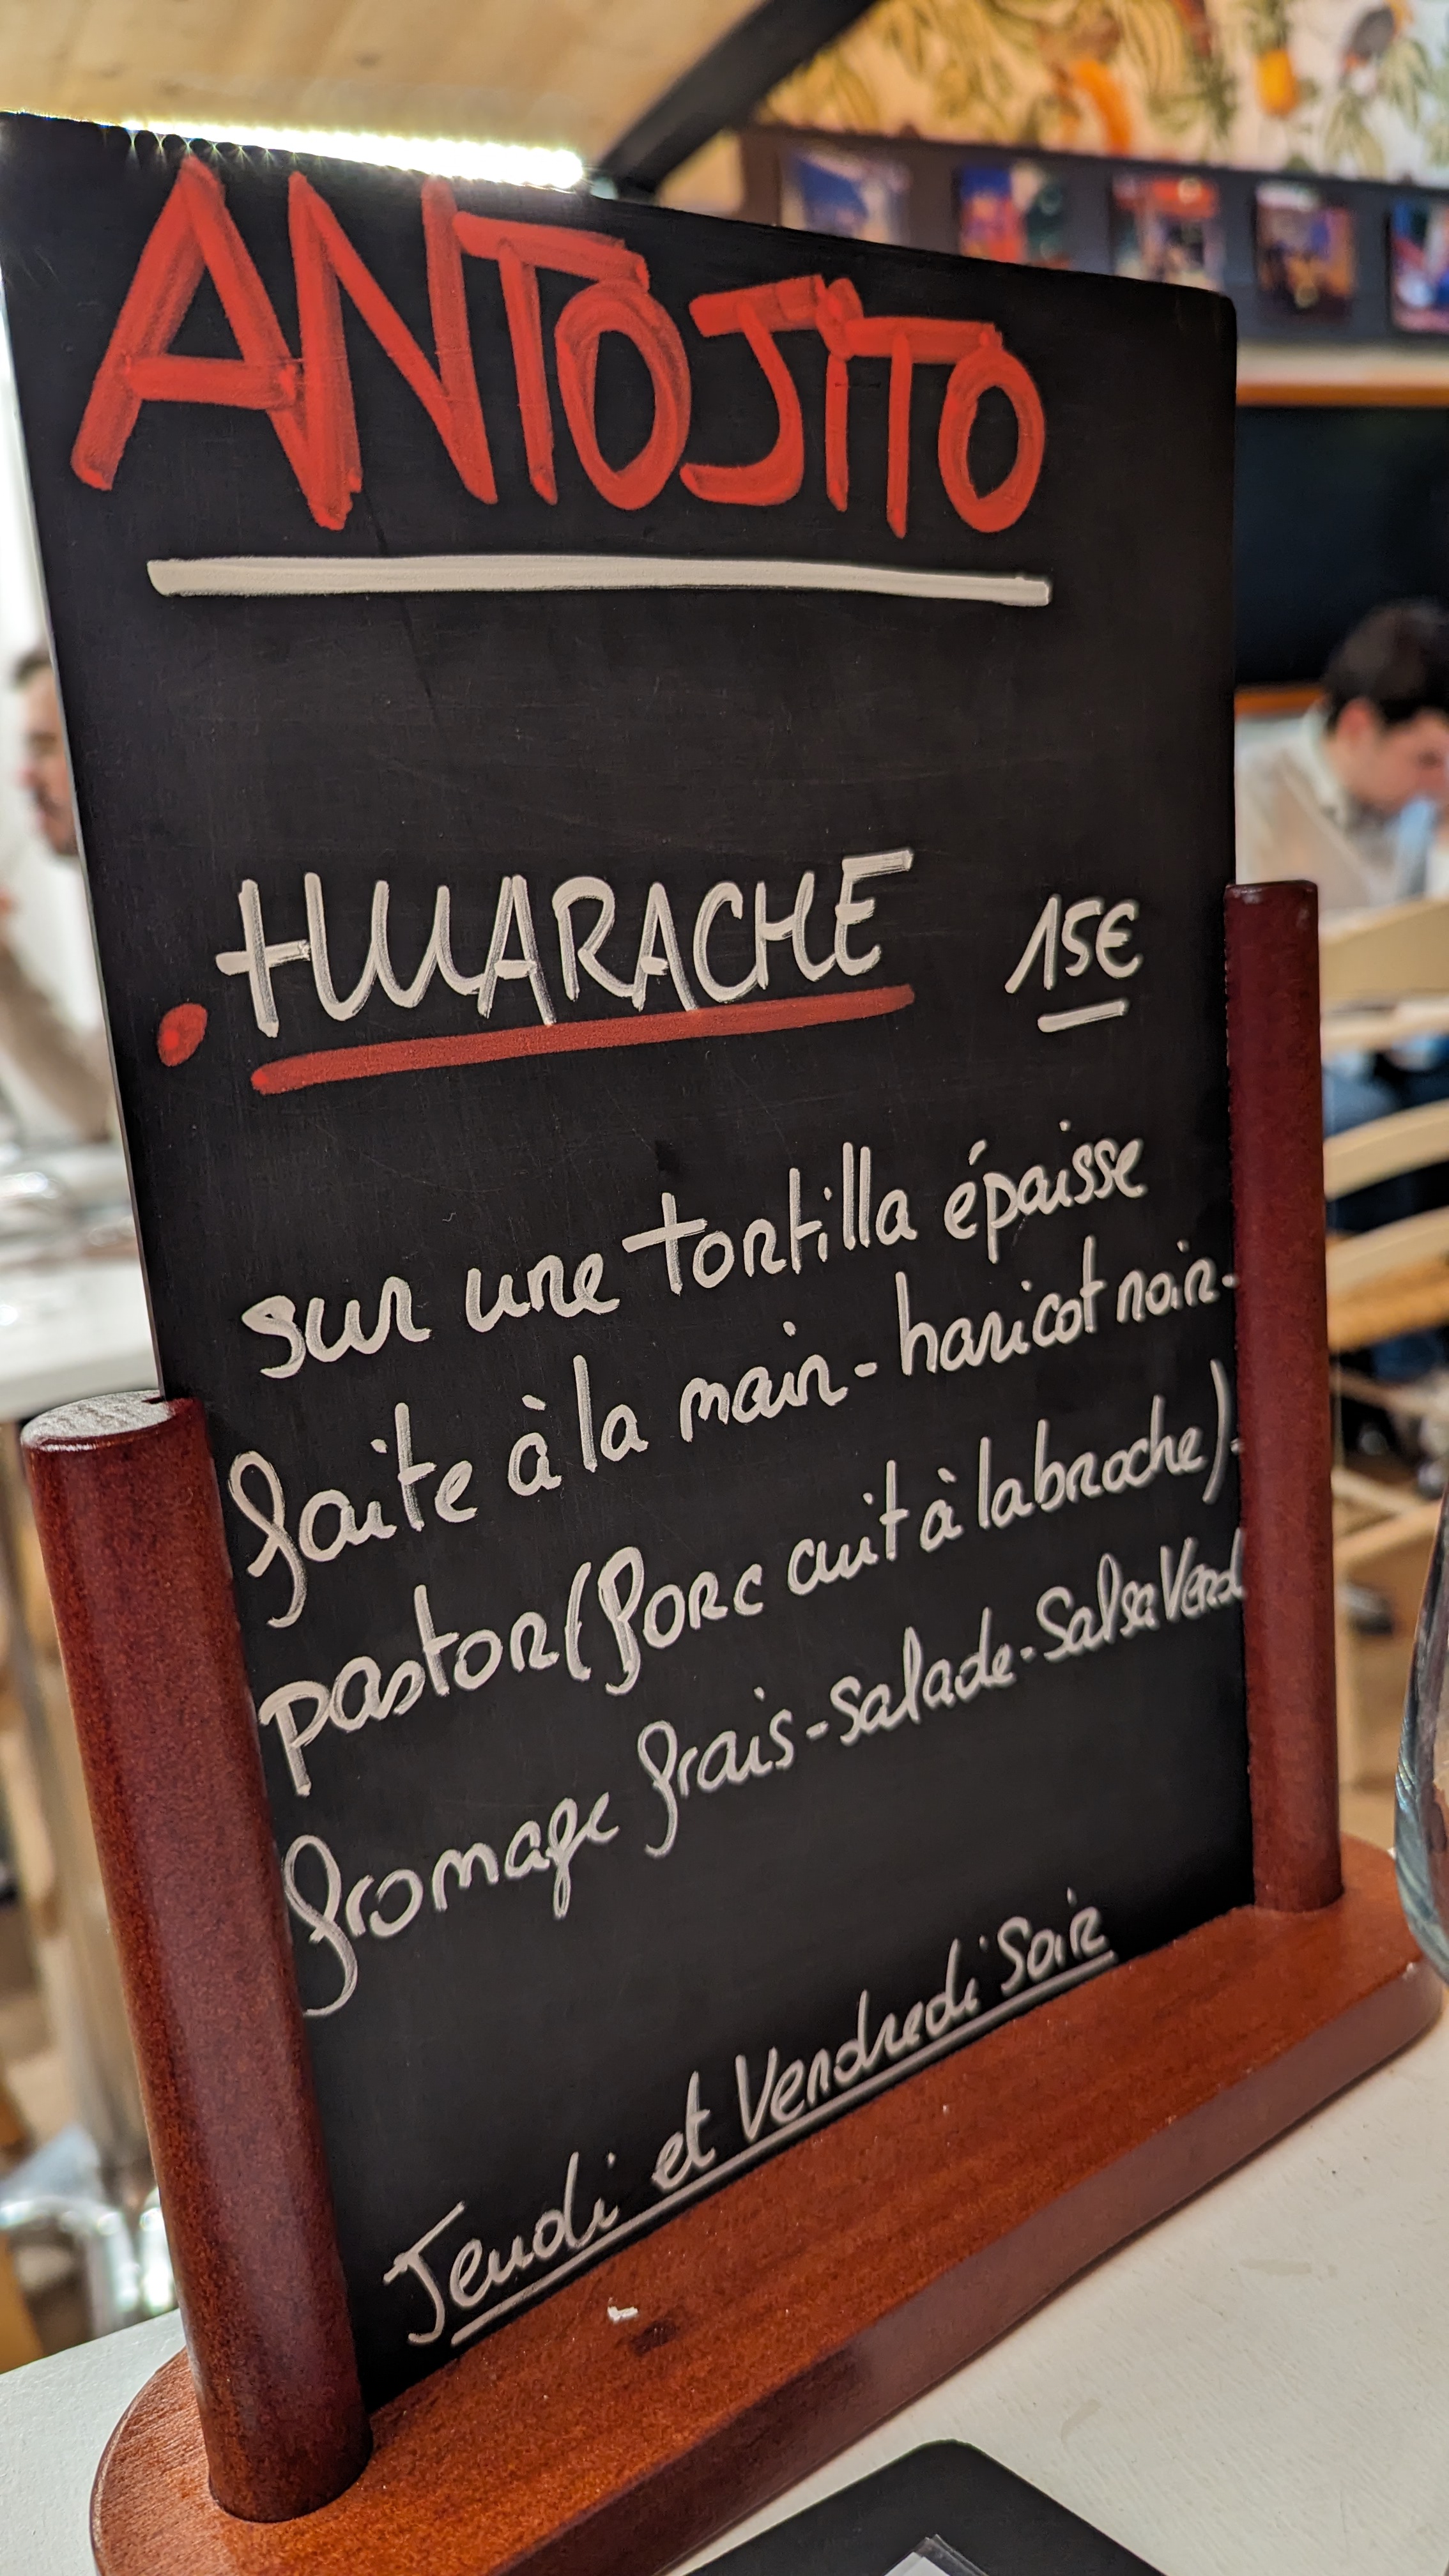 ANTOJITO
HUARACHE 15€
sur une tortilla épaisse
faite à la main - haricot noir -
pastor (Porc cuit à la broche) -
fromage frais - salade - Salsa Verd
Jeudi et Vendredi Soir